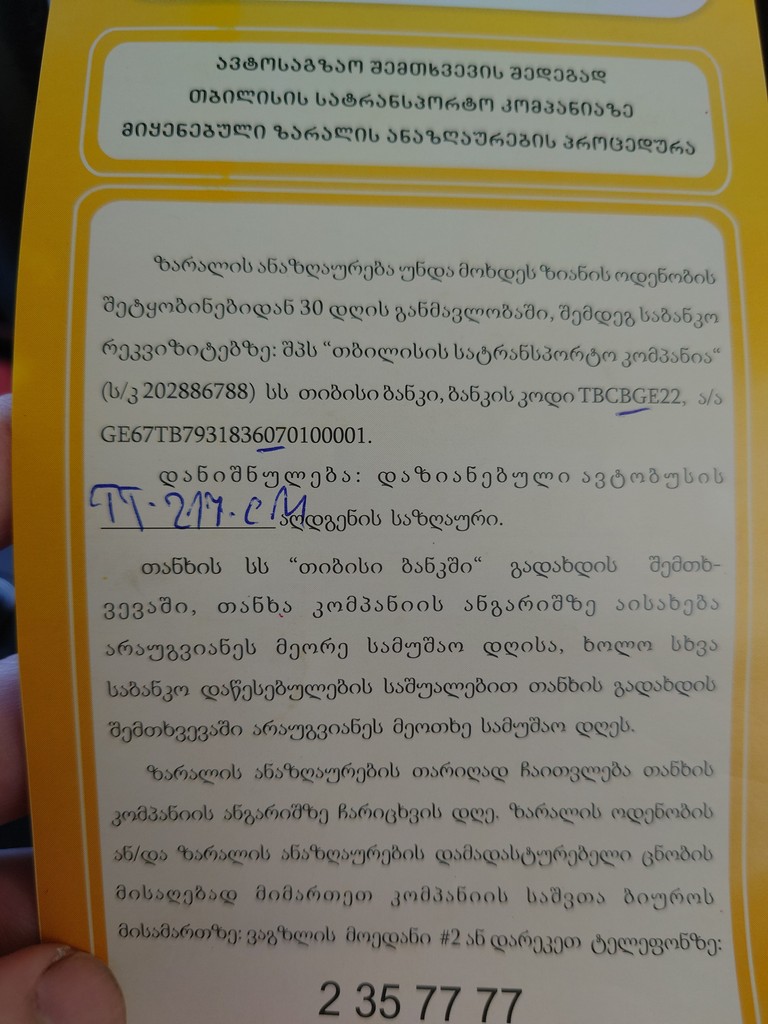 ავტოსაგზაო შემთხვევის შედეგად
თბილისის სატრანსპორტო კომპანიაზე
მიყენებული ზარალის ანაზღაურების პროცედურა
ზარალის ანაზღაურება უნდა მოხდეს ზიანის ოდენობის
შეტყობინებიდან 30 დღის განმავლობაში, შემდეგ საბანკო
რეკვიზიტებზე: შპს “თბილისის სატრანსპორტო კომპანია“
(ს/კ 202886788) სს თიბისი ბანკი, ბანკის კოდი TBCBGE22, ა/ა
GE67TB7931836070100001.
დანიშნულება: დაზიანებული ავტობუსის
TT-217-CM აღდგენის საზღაური.
თანხის სს “თიბისი ბანკში“ გადახდის შემთხ-
ვევაში, თანხა კომპანიის ანგარიშზე აისახება
არაუგვიანეს მეორე სამუშაო დღისა, ხოლო სხვა
საბანკო დაწესებულების საშუალებით თანხის გადახდის
შემთხვევაში არაუგვიანეს მეოთხე სამუშაო დღეს.
ზარალის ანაზღაურების თარიღად ჩაითვლება თანხის
კომპანიის ანგარიშზე ჩარიცხვის დღე. ზარალის ოდენობის
ან/და ზარალის ანაზღაურების დამადასტურებელი ცნობის
მისაღებად მიმართეთ კომპანიის საშვთა ბიუროს
მისამართზე: ვაგზლის მოედანი #2 ან დარეკეთ ტელეფონზე:
2 35 77 77